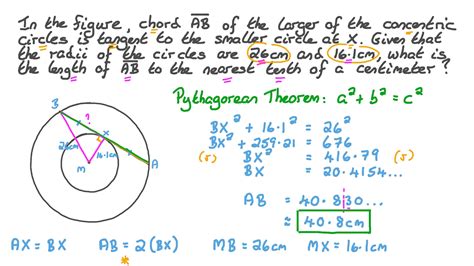 In the figure, chord AB of the larger of the concentric
circles is tangent to the smaller circle at X. Given that
the radii of the circles are 26cm and 16.1cm, what is
the length of AB to the nearest tenth of a centimeter?
Pythagorean Theorem: a² + b² = c²
B
?
x
26cm
x
x
16.1cm
M
A
BX² + 16.1² = 26²
BX² + 259.21 = 676
(√) BX² = 416.79 (√)
BX = 20.4154...
AB = 40.830...
≈ 40.8cm
AX = BX AB = 2(BX) MB = 26cm MX = 16.1cm
*